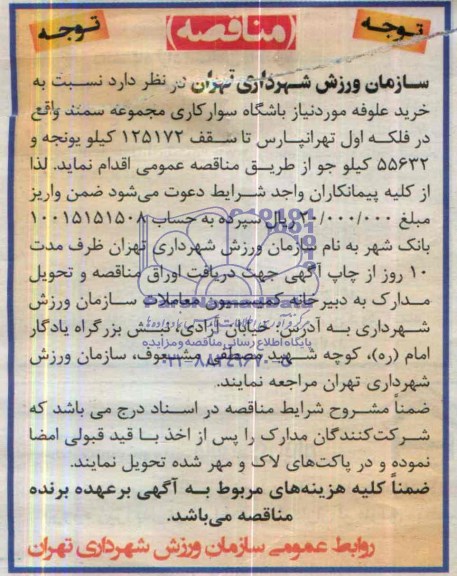 توجه
(مناقصه)
توجه
سازمان ورزش شهرداری تهران در نظر دارد نسبت به
خرید علوفه موردنیاز باشگاه سوارکاری مجموعه سمند واقع
در فلکه اول تهرانپارس تا سقف ۱۲۵۱۷۲ کیلو یونجه و
۵۵۶۳۲ کیلو جو از طریق مناقصه عمومی اقدام نماید. لذا
از کلیه پیمانکاران واجد شرایط دعوت می‌شود ضمن واریز
مبلغ ریال سپرده به حساب ۱۰۰۱۵۱۵۱۵۰۸
بانک شهر به نام سازمان ورزش شهرداری تهران ظرف مدت
۱۰ روز از چاپ آگهی جهت دریافت اوراق مناقصه و تحویل
مدارک به دبیرخانه کمیسیون معاملات سازمان ورزش
شهرداری به آدرس: خیابان آزادی، نبش بزرگراه یادگار
امام (ره)، کوچه شهید مصطفی سازمان ورزش
شهرداری تهران مراجعه نمایند.
ضمناً مشروح شرایط مناقصه در اسناد درج می باشد که
شرکت‌کنندگان مدارک را پس از اخذ با قید قبولی امضا
نموده و در پاکت‌های لاک و مهر شده تحویل نمایند.
ضمناً کلیه هزینه‌های مربوط به آگهی برعهده برنده
مناقصه می‌باشد.
روابط عمومی سازمان ورزش شهرداری تهران
پایگاه اطلاع رسانی مناقصه و مزایده